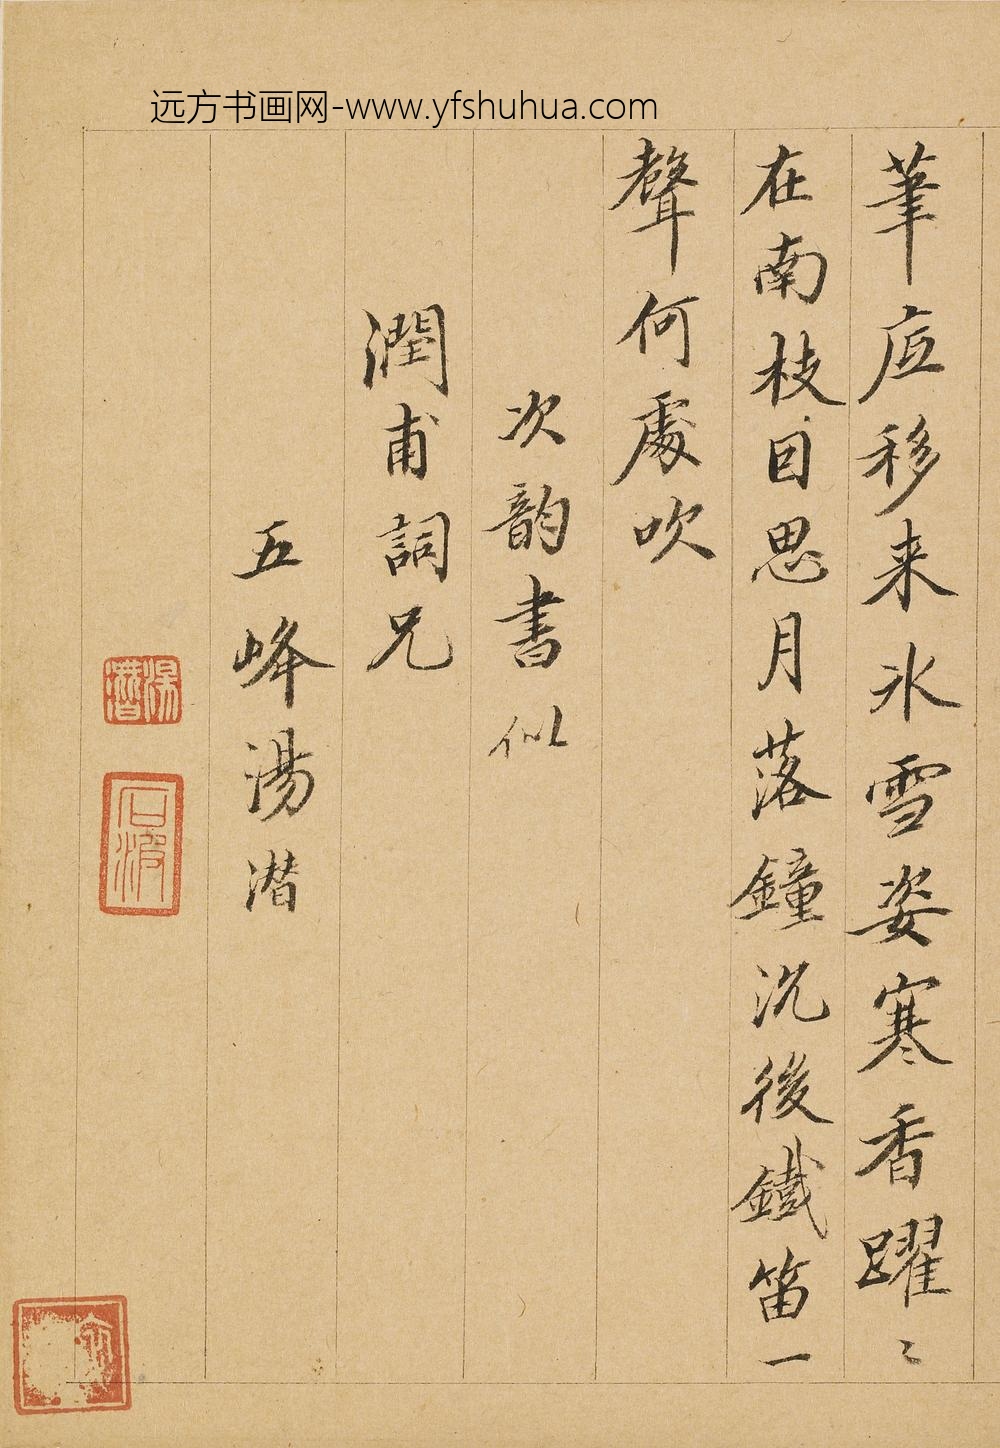 远方书画网-www.yfshuhua.com
筆底移来氷雪姿寒香躍〻
在南枝因思月落鐘沉後鐵笛一
聲何處吹
次韵書似
潤甫詞兄
五峰湯潜
湯潛
石渡